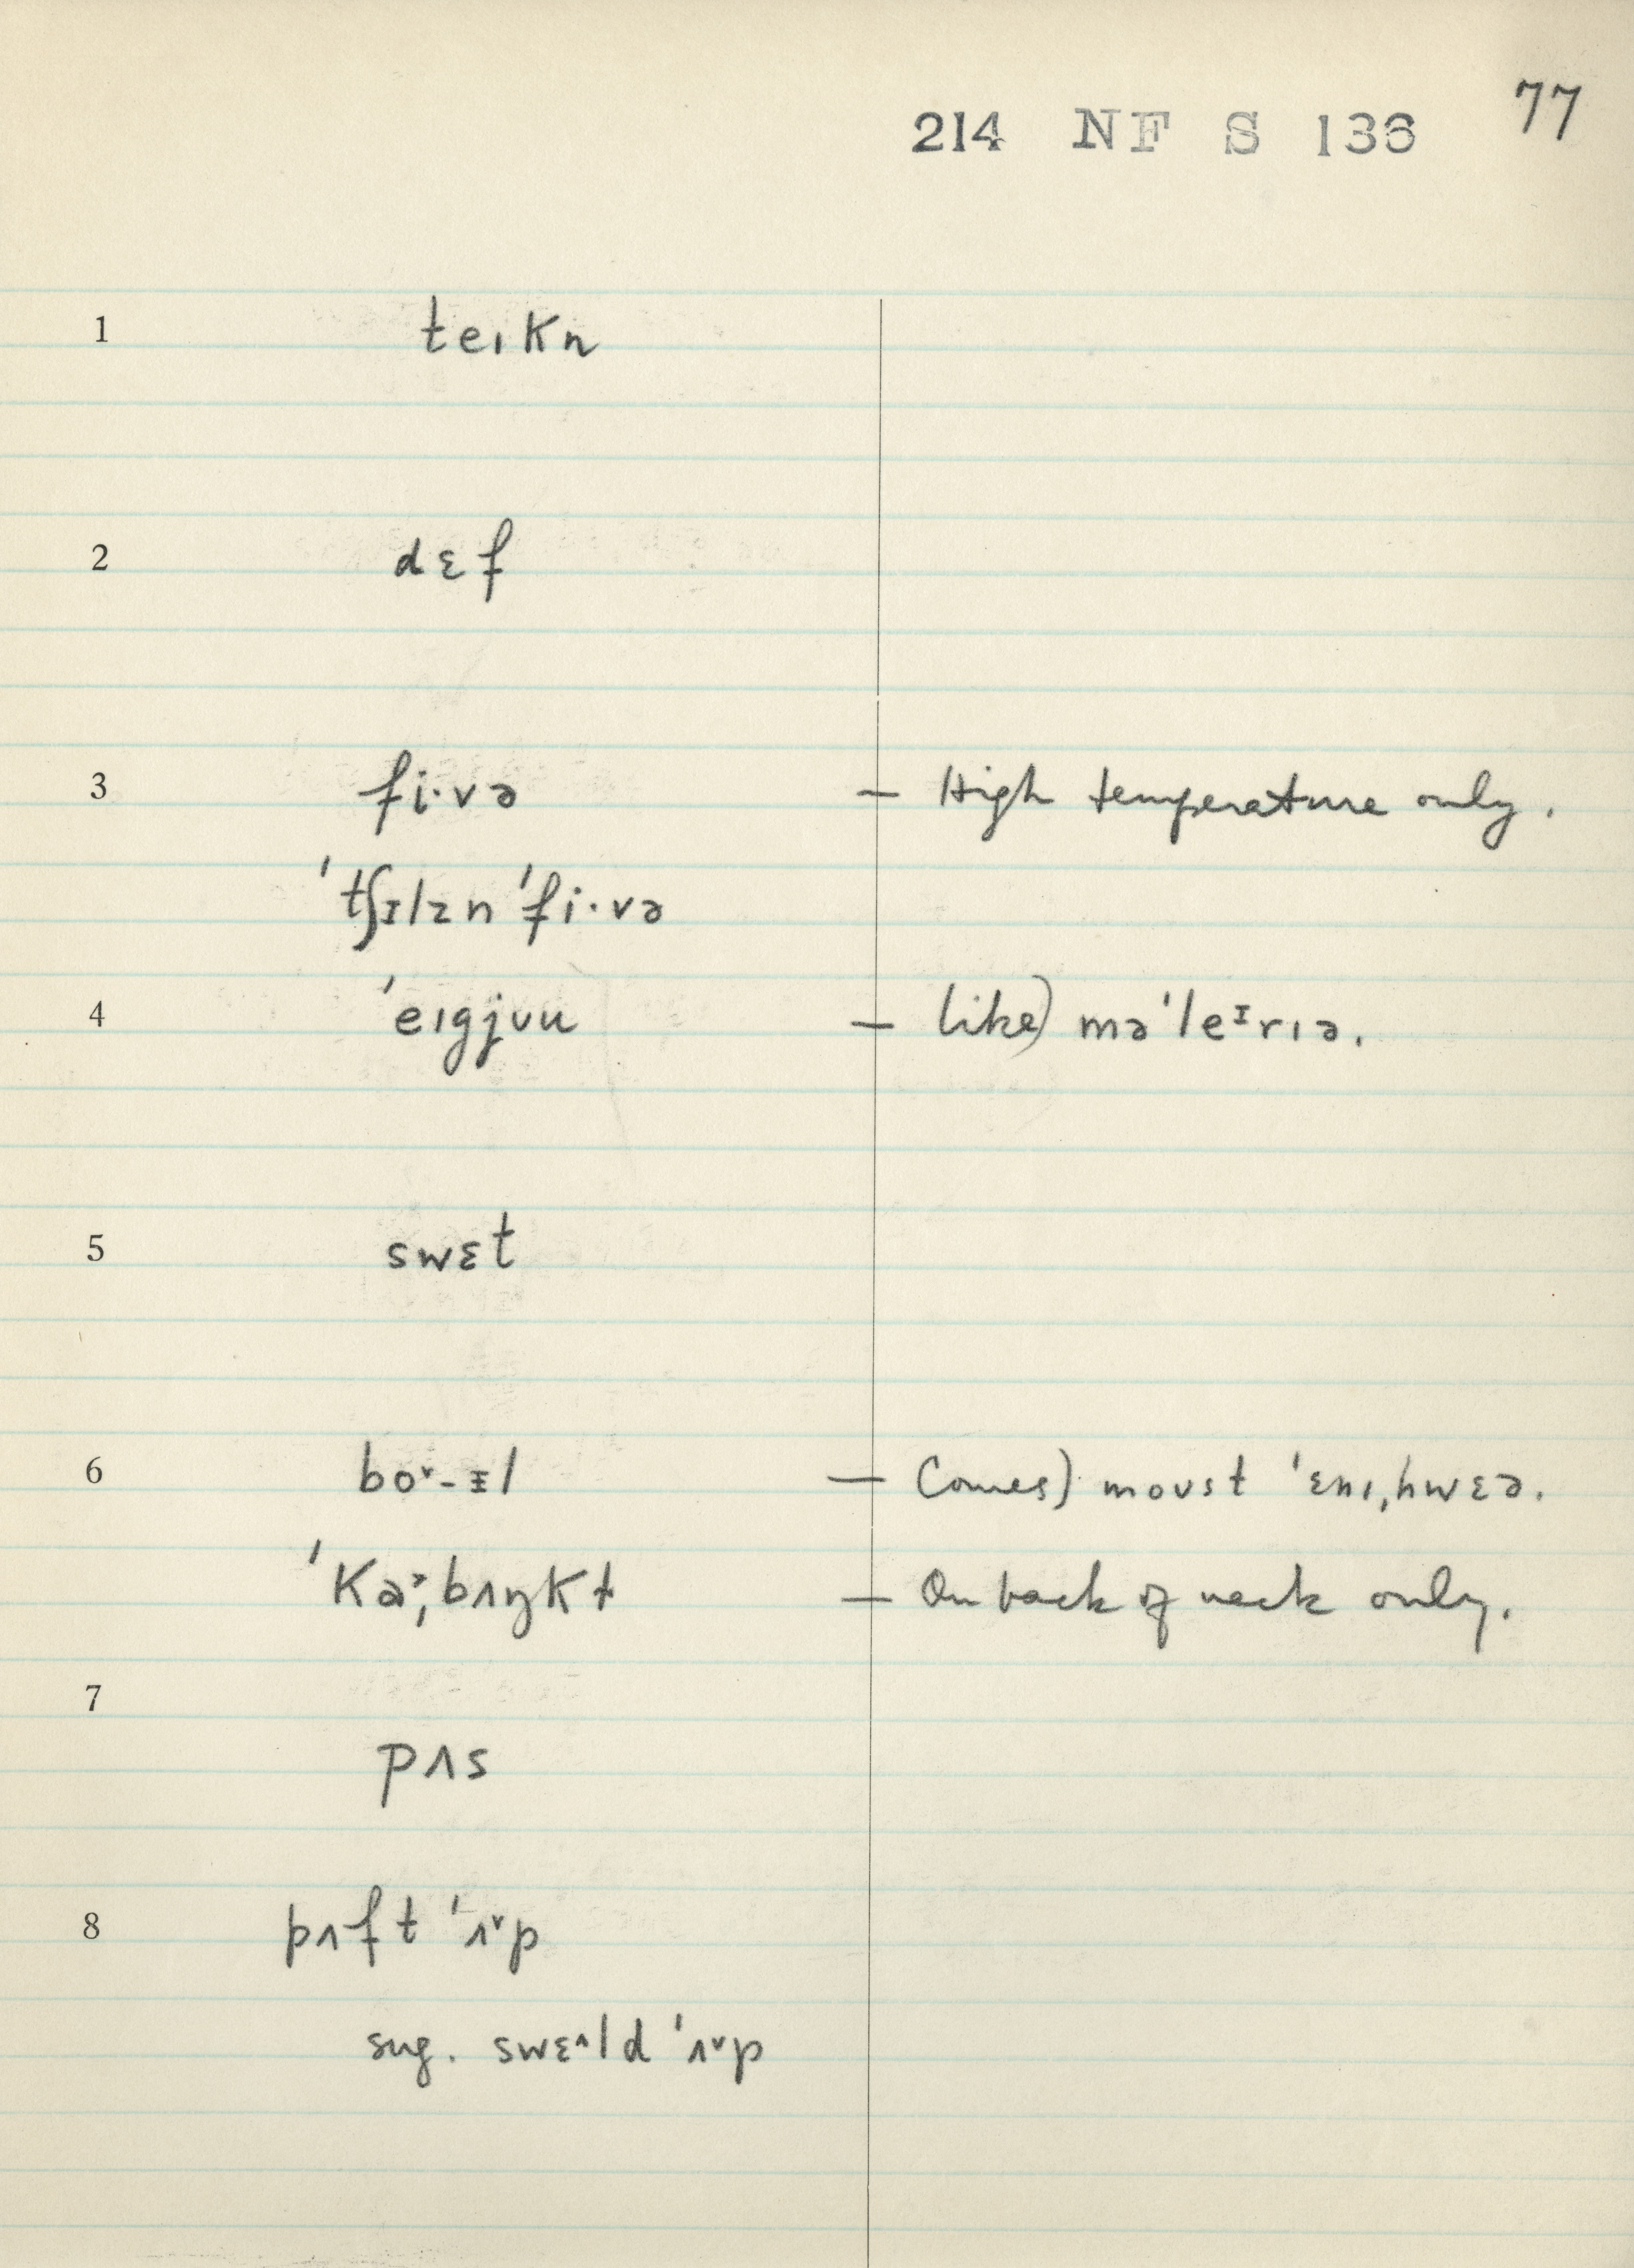 77
214 NF S 136
1 teɪkn
2 dɛf
3 fi·və — High temperature only.
ˈtʃɪlzn ˈfi·və
4 ˈeɪgjʊu — like) məˈleᶦrɪə.
5 swɛt
6 bo˅-ᵻl — Comes) moʊst ˈɛnɪˌhwɛə.
ˈkɑ˃ˌbʌŋkt — On back of neck only.
7
pʌs
8 pʌft ˈʌ˅p
sug. swɛ^ld ˈʌ˅p